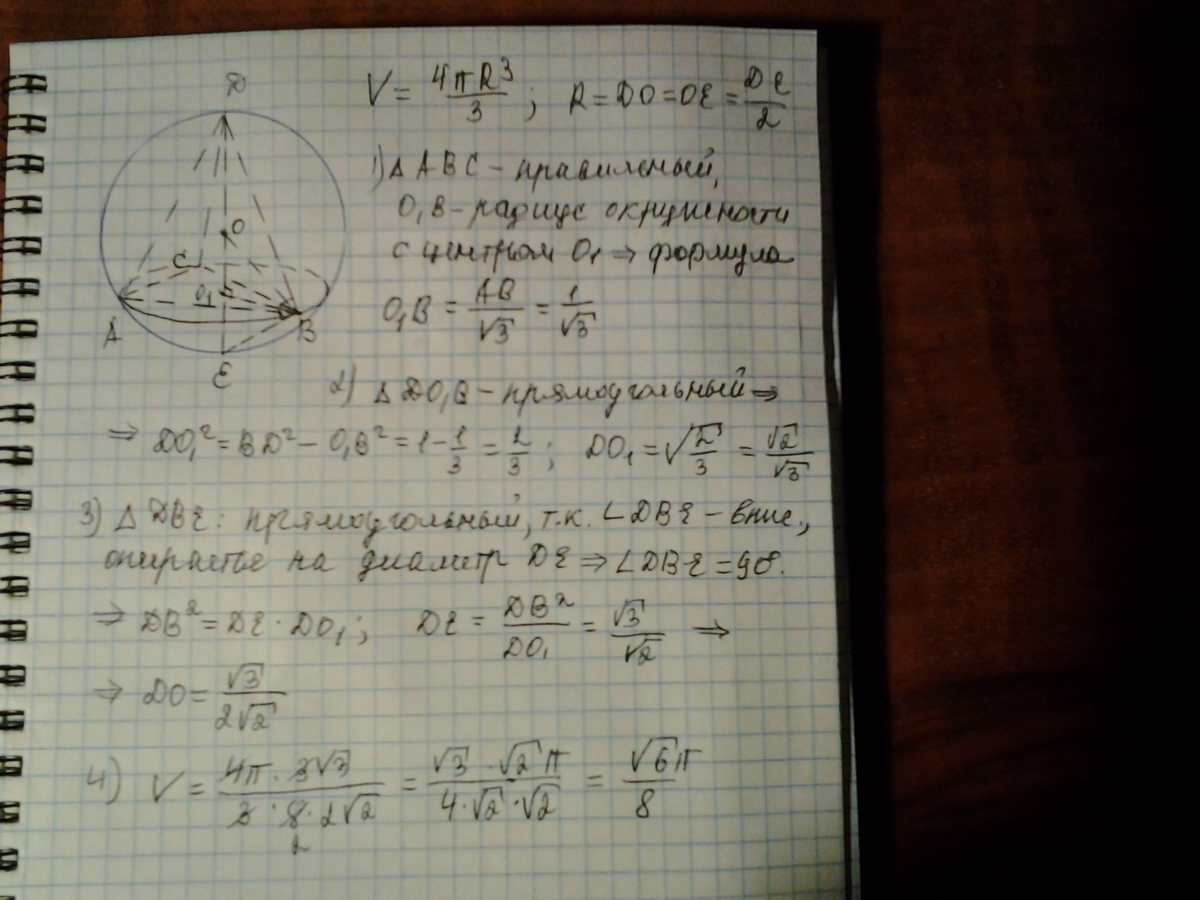 D
V = 4πR³/3 ; R = DO = OE = DE/2
1) Δ ABC – правильный,
O₁B – радиус окружности
с центром O₁ ⇒ формула
O₁B = AB/√3 = 1/√3
O
C
O₁
A
B
E
2) Δ DO₁B – прямоугольный ⇒
⇒ DO₁² = BD² – O₁B² = 1 – 1/3 = 2/3 ; DO₁ = √(2/3) = √2/√3
3) Δ DBE: прямоугольный, т.к. ∠DBE – впис.,
опирается на диаметр DE ⇒ ∠DBE = 90°.
⇒ DB² = DE · DO₁ ; DE = DB²/DO₁ = √3/√2 ⇒
⇒ DO = √3/2√2
4) V = 4π · 3√3/3 · 8 · 2√2 = √3 · √2 π/4 · √2 · √2 = √6 π/8
2